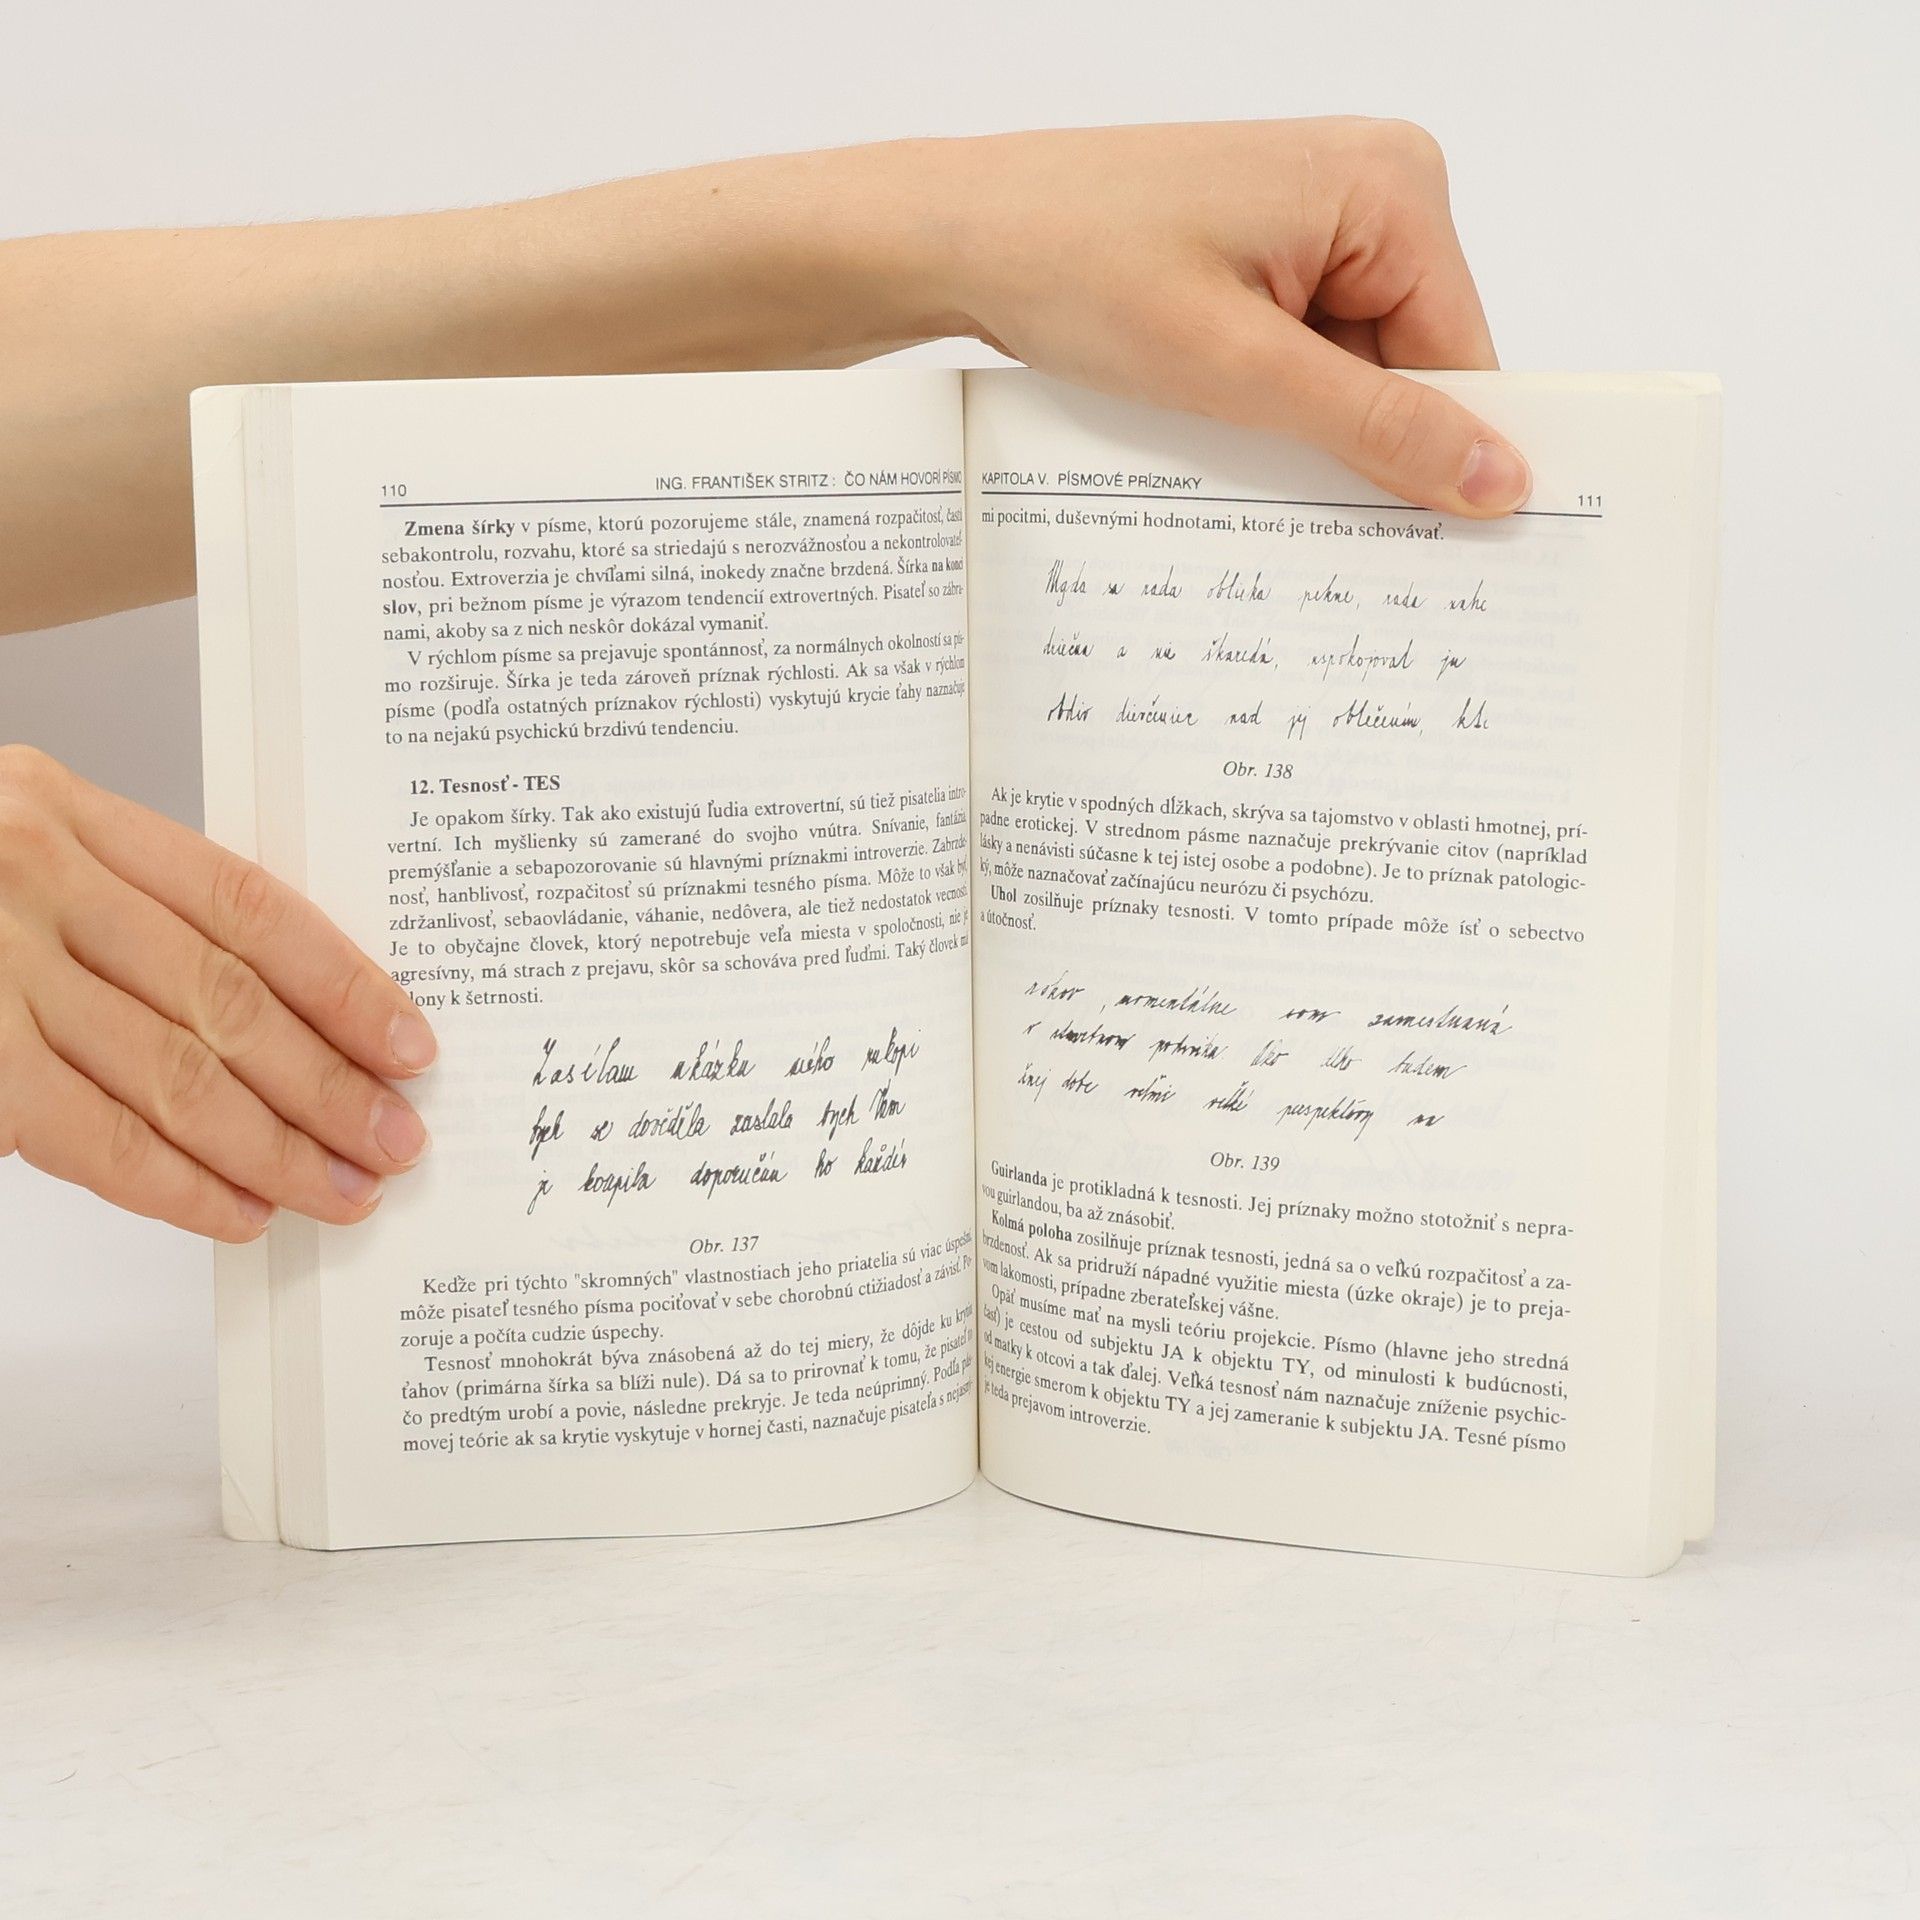 110
ING. FRANTIŠEK STRITZ : ČO NÁM HOVORÍ PÍSMO
Zmena šírky v písme, ktorú pozorujeme stále, znamená rozpačitosť, časti
sebakontrolu, rozvahu, ktoré sa striedajú s nerozvážnosťou a nekontrolovateľ-
nosťou. Extroverzia je chvíľami silná, inokedy značne brzdená. Šírka na konci
slov, pri bežnom písme je výrazom tendencií extrovertných. Pisateľ so zábra-
nami, akoby sa z nich neskôr dokázal vymaniť.
V rýchlom písme sa prejavuje spontánnosť, za normálnych okolností sa pís-
mo rozširuje. Šírka je teda zároveň príznak rýchlosti. Ak sa však v rýchlom
písme (podľa ostatných príznakov rýchlosti) vyskytujú krycie ťahy naznačuje
to na nejakú psychickú brzdivú tendenciu.
12. Tesnosť - TES
Je opakom šírky. Tak ako existujú ľudia extrovertní, sú tiež pisatelia intro-
vertní. Ich myšlienky sú zamerané do svojho vnútra. Snívanie, fantázia
premýšľanie a sebapozorovanie sú hlavnými príznakmi introverzie. Zabrzde-
nosť, hanblivosť, rozpačitosť sú príznakmi tesného písma. Môže to však byť
zdržanlivosť, sebaovládanie, váhanie, nedôvera, ale tiež nedostatok vecnosti.
Je to obyčajne človek, ktorý nepotrebuje veľa miesta v spoločnosti, nie je
agresívny, má strach z prejavu, skôr sa schováva pred ľuďmi. Taký človek má
lony k šetrnosti.
Zasílam ukázku svého rukopi
bych se dověděla zaslala bych Vám
je koupila doporučím ho každér
Obr. 137
Keďže pri týchto "skromných" vlastnostiach jeho priatelia sú viac úspešní
môže pisateľ tesného písma pociťovať v sebe chorobnú ctižiadosť a závisť. Po-
zoruje a počíta cudzie úspechy.
Tesnosť mnohokrát býva znásobená až do tej miery, že dôjde ku krytiu
ťahov (primárna šírka sa blíži nule). Dá sa to prirovnať k tomu, že pisateľ to
čo predtým urobí a povie, následne prekryje. Je teda neúprimný. Podľa pás-
movej teórie ak sa krytie vyskytuje v hornej časti, naznačuje pisateľa s nejasný-
KAPITOLA V. PÍSMOVÉ PRÍZNAKY
111
mi pocitmi, duševnými hodnotami, ktoré je treba schovávať.
Magda sa rada oblieka pekne, rada
a nie škaredá, uspokojoval ju
obdiv dievčeniec nad jej oblečením, kto
Obr. 138
Ak je krytie v spodných dĺžkach, skrýva sa tajomstvo v oblasti hmotnej, prí-
padne erotickej. V strednom pásme naznačuje prekrývanie citov (napríklad
lásky a nenávisti súčasne k tej istej osobe a podobne). Je to príznak patologic-
ký, môže naznačovať začínajúcu neurózu či psychózu.
Uhol zosilňuje príznaky tesnosti. V tomto prípade môže ísť o sebectvo
a útočnosť.
rokov, momentálne som zamestnaná
v podniku. Ako dlho budem
dobe veľmi veľké perspektívy na
Obr. 139
Guirlanda je protikladná k tesnosti. Jej príznaky možno stotožniť s nepra-
vou guirlandou, ba až znásobiť.
Kolmá poloha zosilňuje príznak tesnosti, jedná sa o veľkú rozpačitosť a za-
brzdenosť. Ak sa pridruží nápadné využitie miesta (úzke okraje) je to preja-
vom lakomosti, prípadne zberateľskej vášne.
Opäť musíme mať na mysli teóriu projekcie. Písmo (hlavne jeho stredná
časť) je cestou od subjektu JA k objektu TY, od minulosti k budúcnosti,
od matky k otcovi a tak ďalej. Veľká tesnosť nám naznačuje zníženie psychic-
kej energie smerom k objektu TY a jej zameranie k subjektu JA. Tesné písmo
je teda prejavom introverzie.